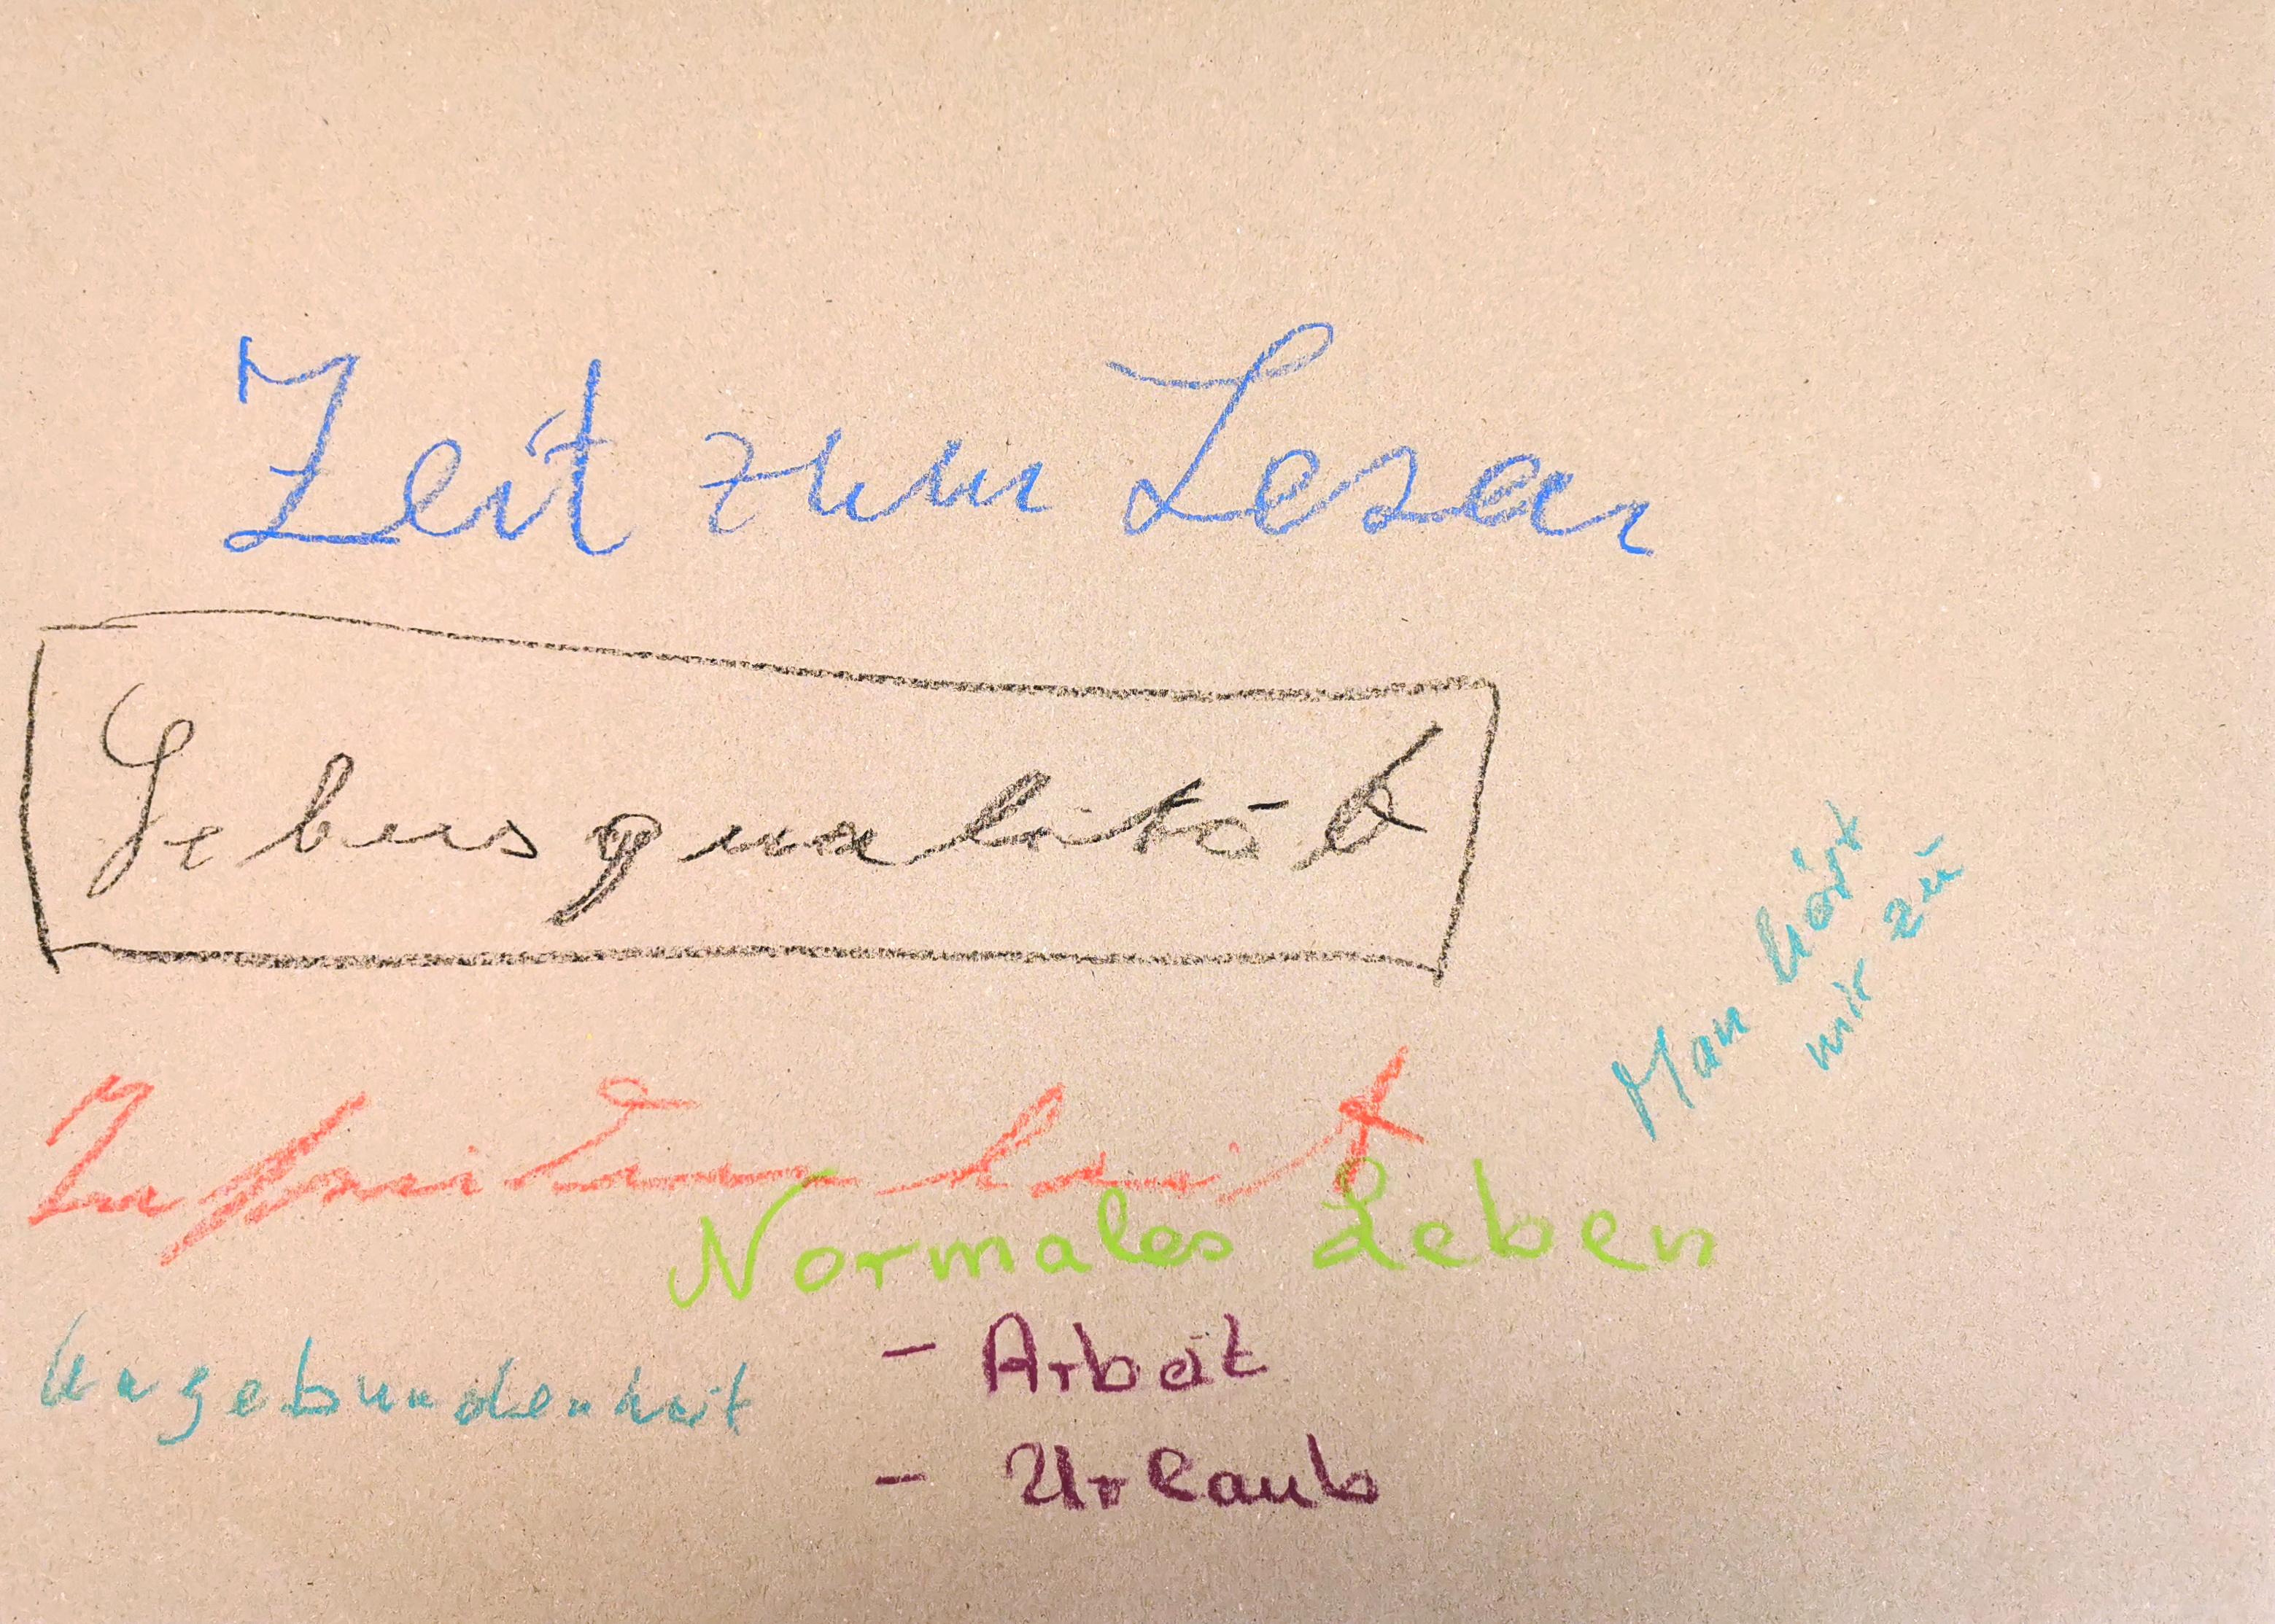 Zeit zum Lesen
Lebensqualität
Man hört
mir zu
Zufriedenheit
Normales Leben
Ungebundenheit
- Arbeit
- Urlaub